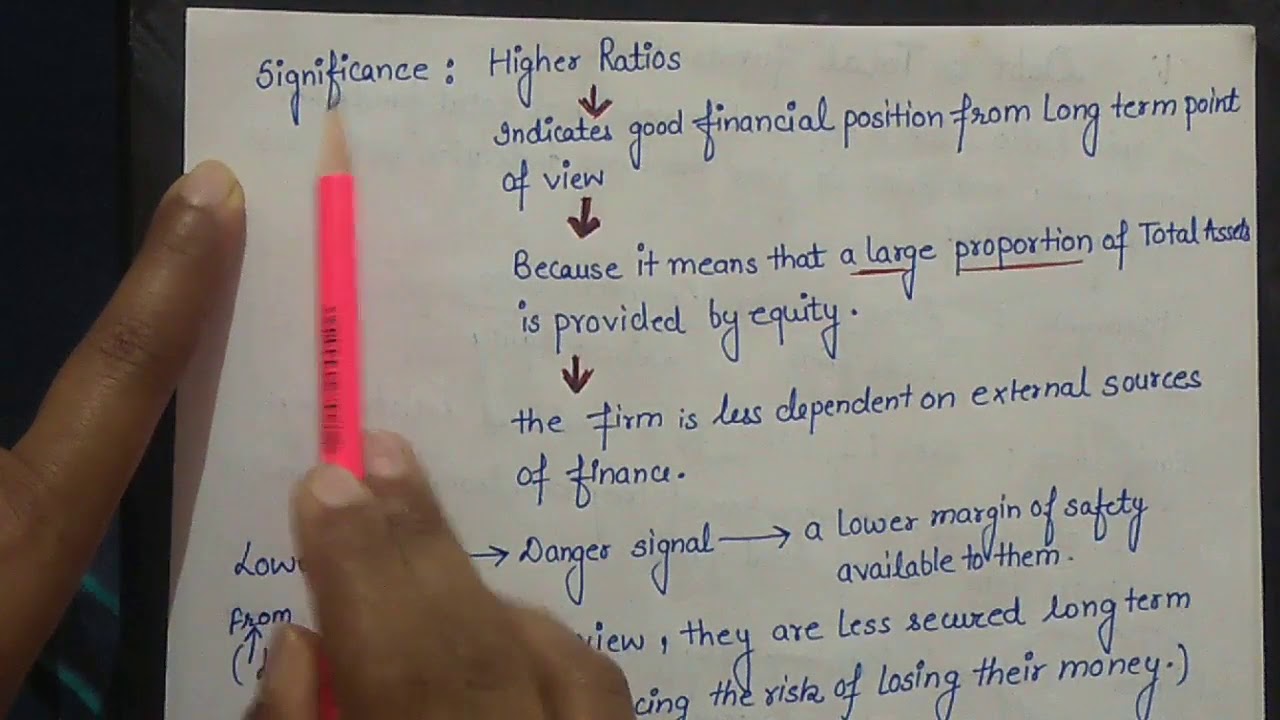 Significance : Higher Ratios
↓
Indicates good financial position from Long term point
of view
↓
Because it means that a large proportion of Total Assets
is provided by equity.
↓
the firm is less dependent on external sources
of finance.
→ Danger signal → a Lower margin of safety
available to them.
from
view, they are less secured long term
the risk of losing their money.)